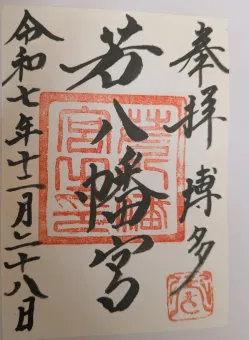 奉拝 博多
若八幡宮
令和七年十二月二十八日